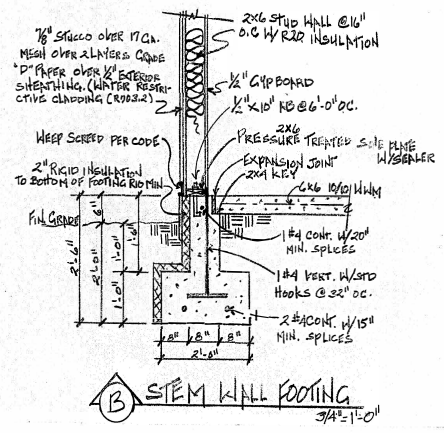 7/8" STUCCO OVER 17 GA.
MESH OVER 2 LAYERS GRADE
"D" PAPER OVER 1/2" EXTERIOR
SHEATHING. (WATER RESTRI-
CTIVE CLADDING (R703.2)
WEEP SCREED PER CODE
2" RIGID INSULATION
TO BOTTOM OF FOOTING R10 MIN.
FIN. GRADE
2x6 STUD WALL @ 16"
O.C. W/ R20 INSULATION
1/2" GYP BOARD
1/2" x 10" AB @ 6'-0" O.C.
2x6
PRESSURE TREATED SILL PLATE
W/SEALER
EXPANSION JOINT
2x4 KEY
6x6 10/10 WWM
1 #4 CONT. W/20"
MIN. SPLICES
1 #4 VERT. W/STD
HOOKS @ 32" O.C.
2 #4 CONT. W/15"
MIN. SPLICES
6"
2'-6"
2'-0"
1'-0"
1'-0"
8" 8" 8"
2'-0"
B STEM WALL FOOTING
3/4"=1'-0"